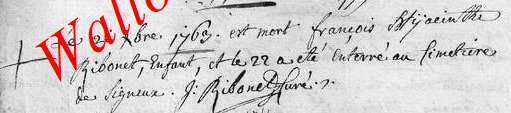 Wallo
Le 21 Xbre 1763. est mort françois Hyacinthe
Ribonet, Enfant, et le 22 a été enterré au Cimetiere
de Signeux. J: Ribonet Curé.